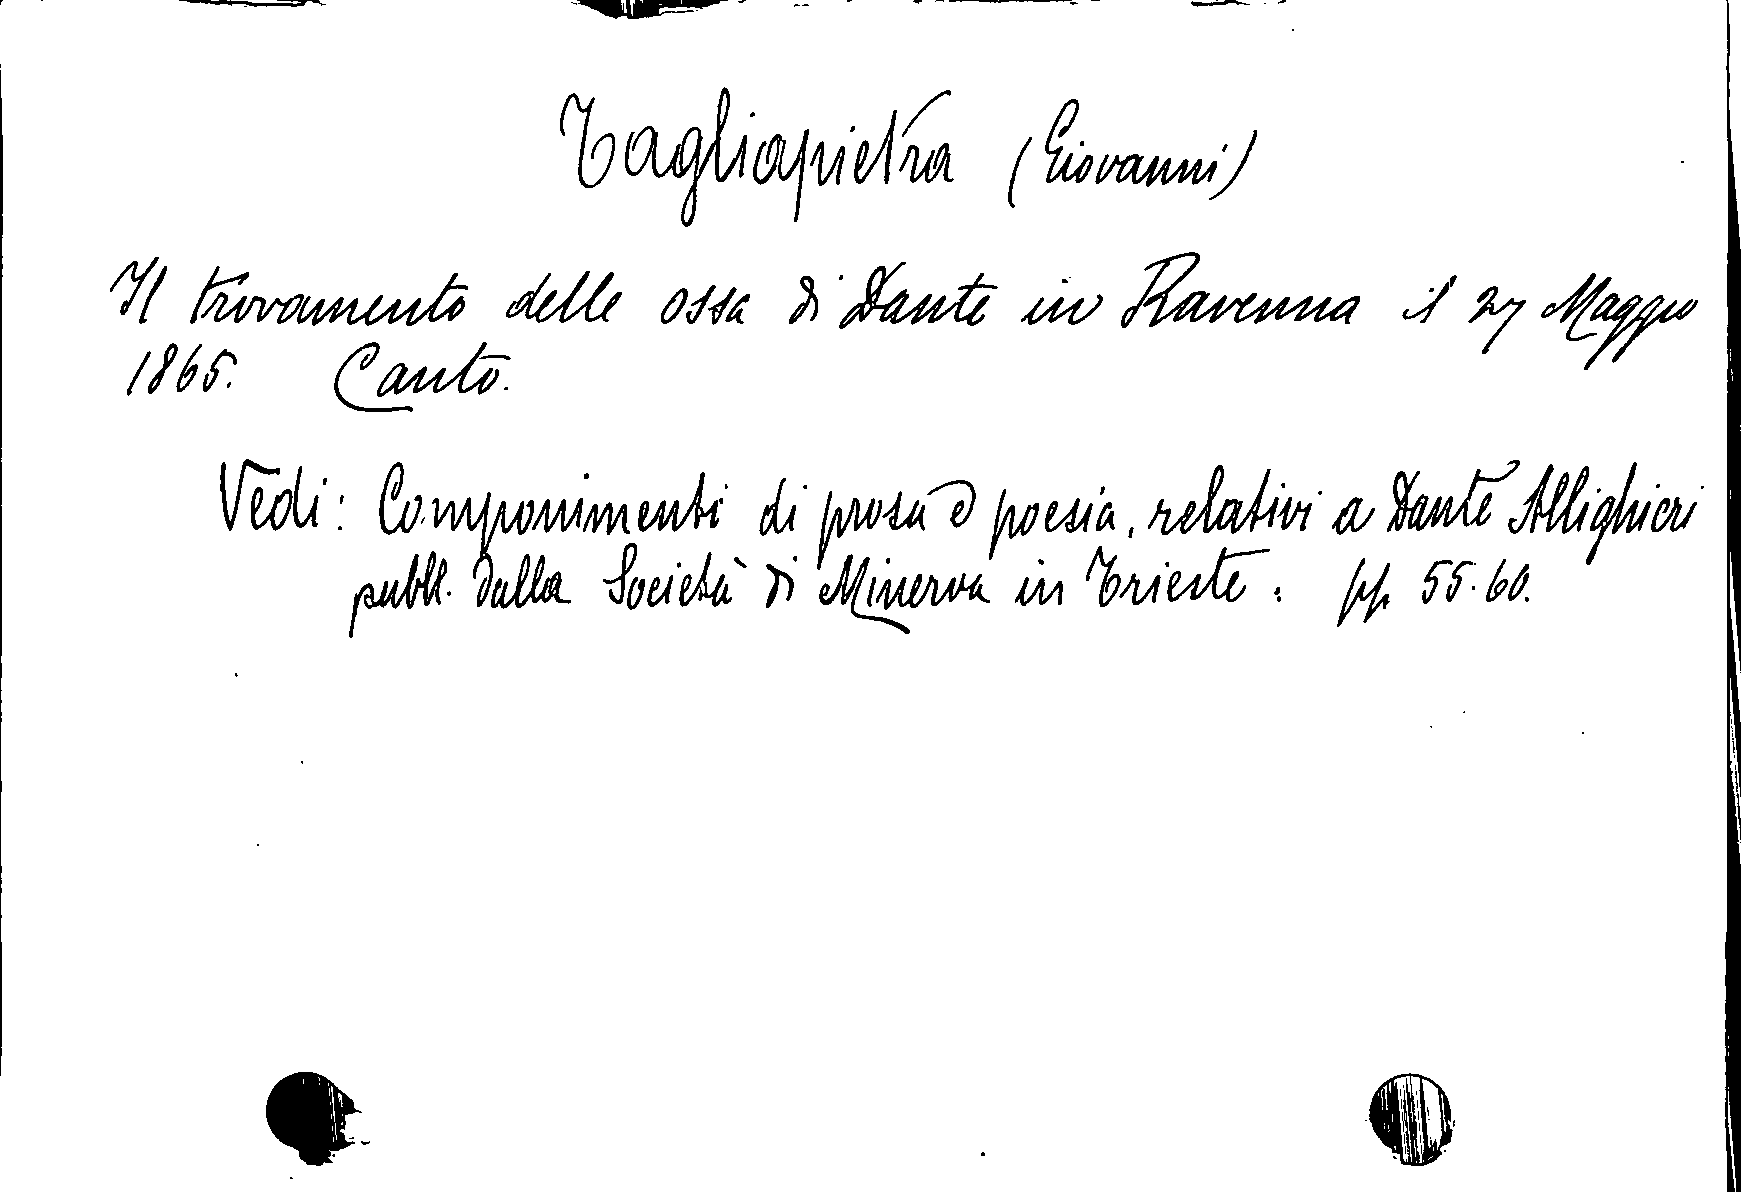 Tagliapietra (Giovanni)
Il trovamento delle ossa di Dante in Ravenna il 27 Maggio
1865. Canto.
Vedi: Componimenti di prosa e poesia, relativi a Dante Allighieri
pubbl. dalla Società di Minerva in Trieste. pp. 55.60.